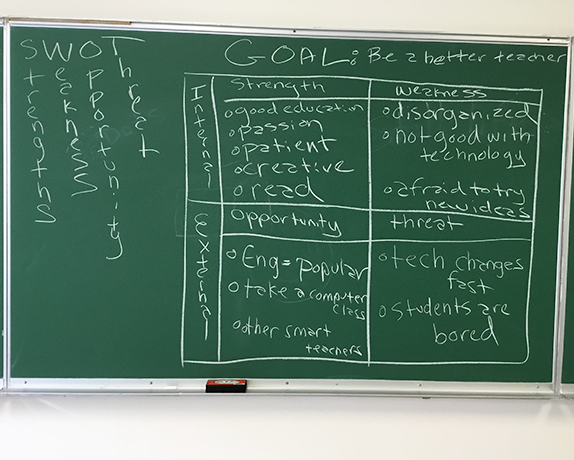 SWOT
Strengths
Weakness
Opportunity
Threat
GOAL: Be a better teacher
Internal
Strength
o good education
o passion
o patient
o creative
o read
Weakness
o disorganized
o not good with
technology
o afraid to try
new ideas
External
Opportunity
o Eng = popular
o take a computer
class
o other smart
teachers
threat
o tech changes
fast
o students are
bored